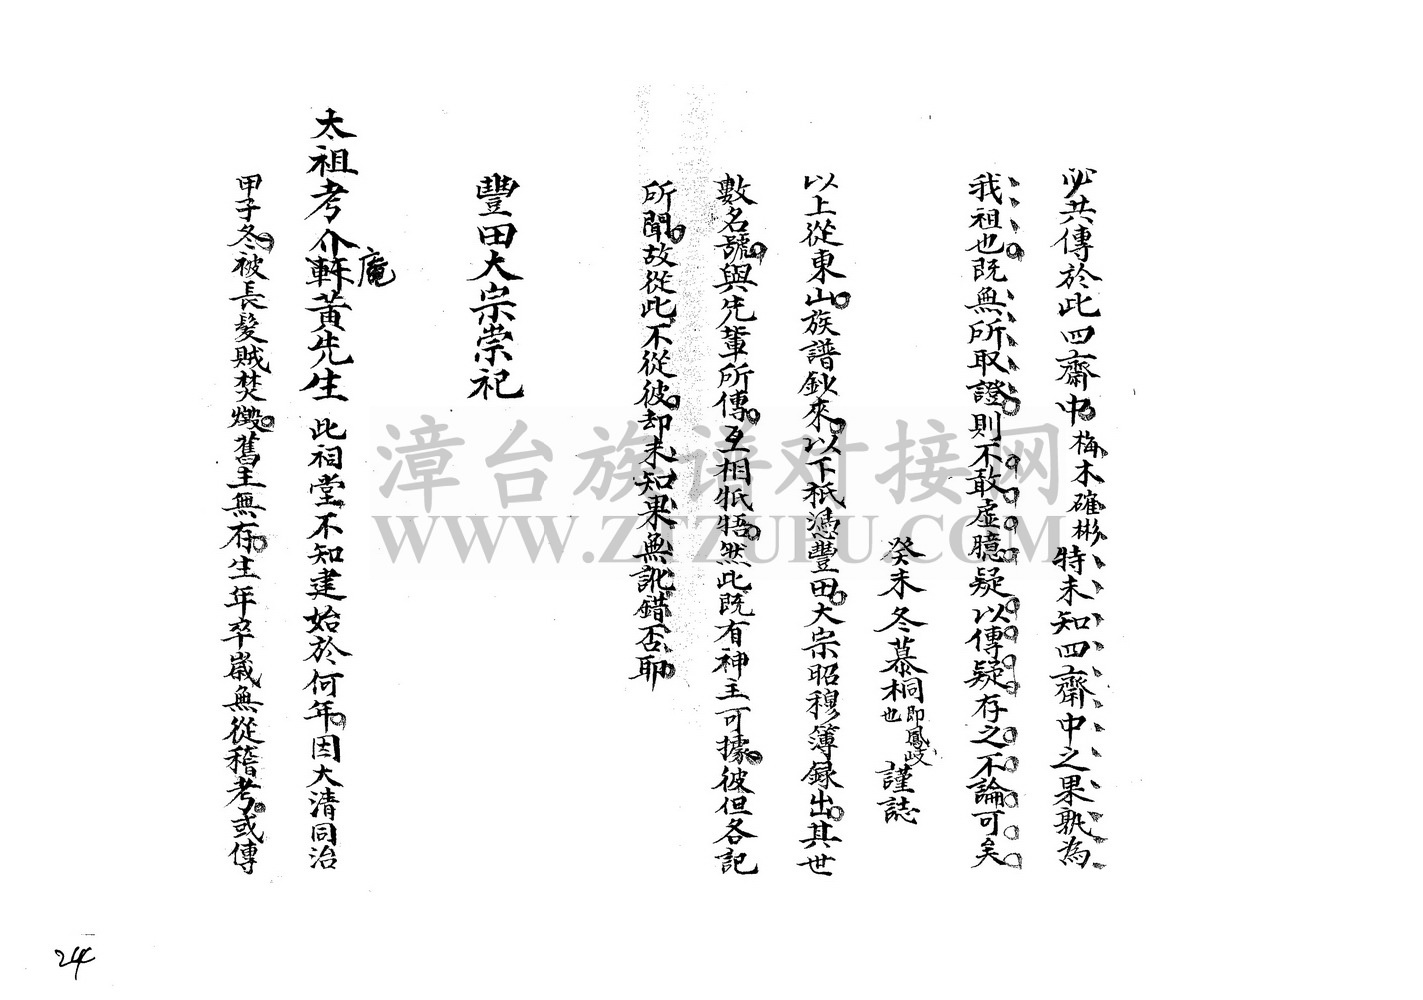 必共傳於此四齋中梅木確彬特未知四齋中之果孰為
我祖也既無所取證則不敢虛臆疑以傳疑存之不論可矣
癸未冬慕桐即鳳岐也謹誌
以上從東山族譜鈔來以下祇憑豐田大宗昭穆簿録出其世
數名號與先輩所傳互相牴牾然此既有神主可據彼但各記
所聞故從此不從彼却未知果無訛錯否耶
豐田大宗崇祀
太祖考介軒黃先生此祠堂不知建始於何年因大清同治
庵
甲子冬被長髮賊焚燬舊主無存生年卒歲無從稽考或傳
漳台族谱对接网
WWW.ZTZUPU.COM
24